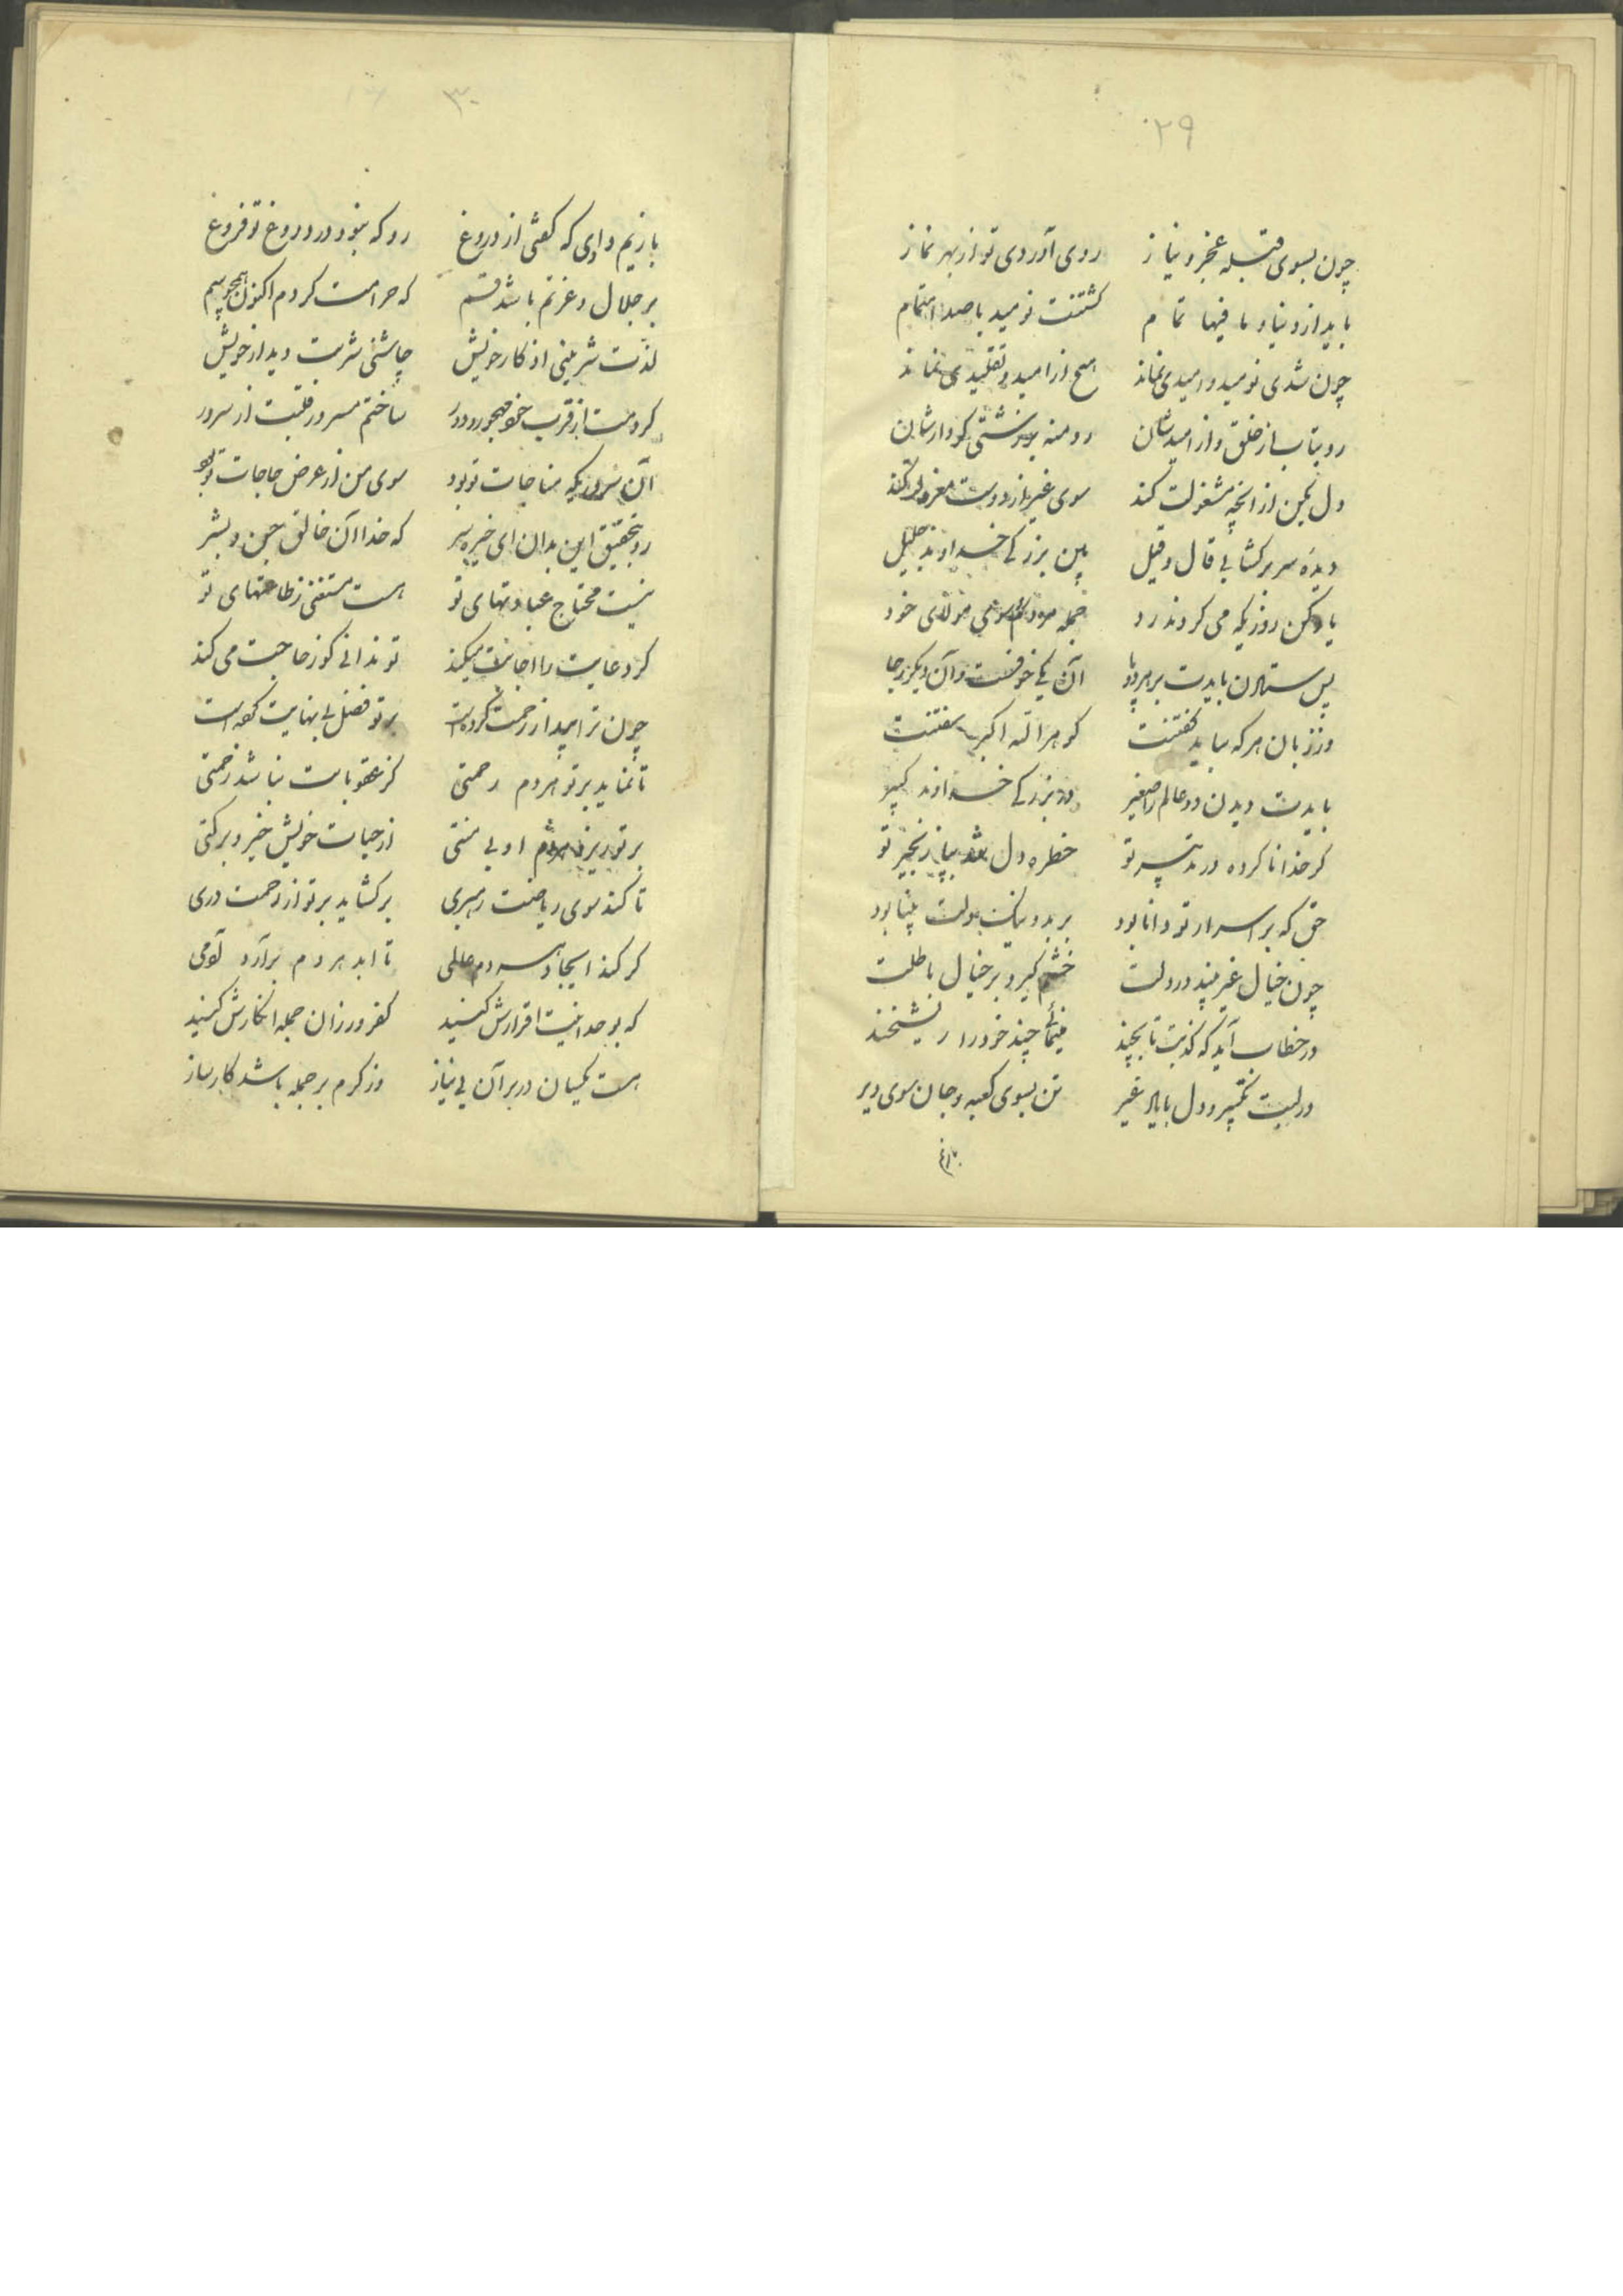 ۲۹
چون بسوی قبله عجز و نیاز روی آوردی تو از بهر نماز
باید از دنیا و ما فیها تمام گشتنت نومید با صد اهتمام
چون شدی نومید و امیدی نماند هیچ از امید و تقلیدی نماند
رو بتاب از خلق و از امیدشان رو منه بر کردارشان
دل بکین از آنچه مشغولت کند سوی غیر از دوست معزولت کند
دیدهٔ سر برگشا بی قال و قیل بین بزرگی خداوند جلیل
یاد کن روزیکه می کردند رد جمله مردم سوی مولای خود
پس ستادن بایدت بر هر دو پا آن یکی خوفست و آن دیگر رجا
وز زبان هر که بباید گفتنت گوهر الله اکبر سفتنت
بایدت دیدن دو عالم را صغیر در بزرگی خداوند کبیر
گر خدا ناکرده در تدبیر تو خطره دل شد زنجیر تو
حق که بر اسرار تو دانا بود بر بد و نیک دلت بینا بود
چون خیال غیر بیند در دلت خشم گیرد بر خیال باطلت
در خطاب آید که کذبت تا بچند مینمائی چند خود را ریشخند
در لبت تکبیر و دل با یاد غیر تن بسوی کعبه و جان سوی دیر
۳۰
بازیم دادی که گفتی از دروغ رو که نبود در دروغ تو فروغ
بر جلال و عزتم باشد قسم که حرامت کردم اکنون همچو سم
لذت شیرینی اذکار خویش چاشنی شربت دیدار خویش
کردمت از قرب خود مهجور و دور ساختم مسرور قلبت از سرور
آن سرور یکه مناجات تو بود سوی من از عرض حاجات تو بود
رو بتحقیق این بدان ای خیره سر که خدا آن خالق جن و بشر
نیست محتاج عبادتهای تو هست مستغنی ز طاعتهای تو
گر دعایت را اجابت میکند تو ندانی کو ز حاجت می کند
چون ترا امید از رحمت کرده است بر تو فضل بی نهایت کرده است
تا نماید بر تو هر دم رحمتی کز عقوبات نباشد زحمتی
بر تو ریزد هر دم او بی منتی از حیات خویش خیر و برکتی
تا کند سوی ریاضت رهبری برگشاید بر تو از رحمت دری
گر کند ایجاد هر دم عالمی تا ابد هر دم برآرد آدمی
که بوحدانیت اقرارش کنید کفر ورزان جمله انکارش کنید
هست یکسان در بر آن بی نیاز وز کرم بر جمله باشد کارساز